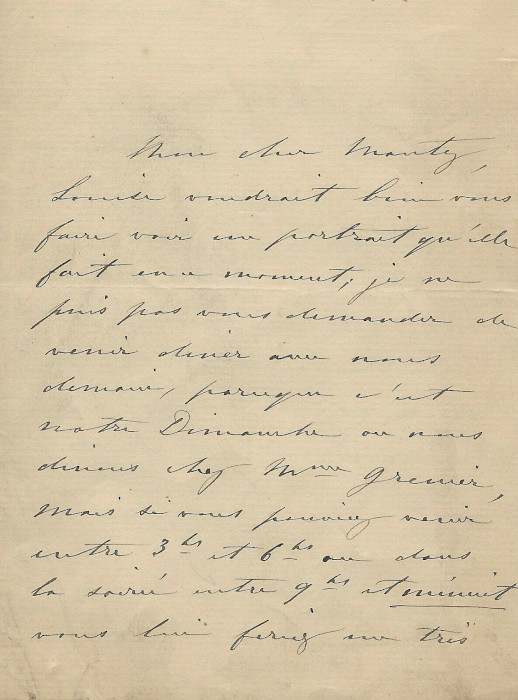 Mon cher Mantz,
Louise voudrait bien vous
faire voir un portrait qu'elle
fait en ce moment; je ne
puis pas vous demander de
venir diner avec nous
demain, parceque c'est
notre Dimanche ou nous
dinons chez Mme Grenier,
mais si vous pouviez venir
entre 3hs et 6hs ou dans
la soirée entre 9hs et minuit
vous lui feriez un très